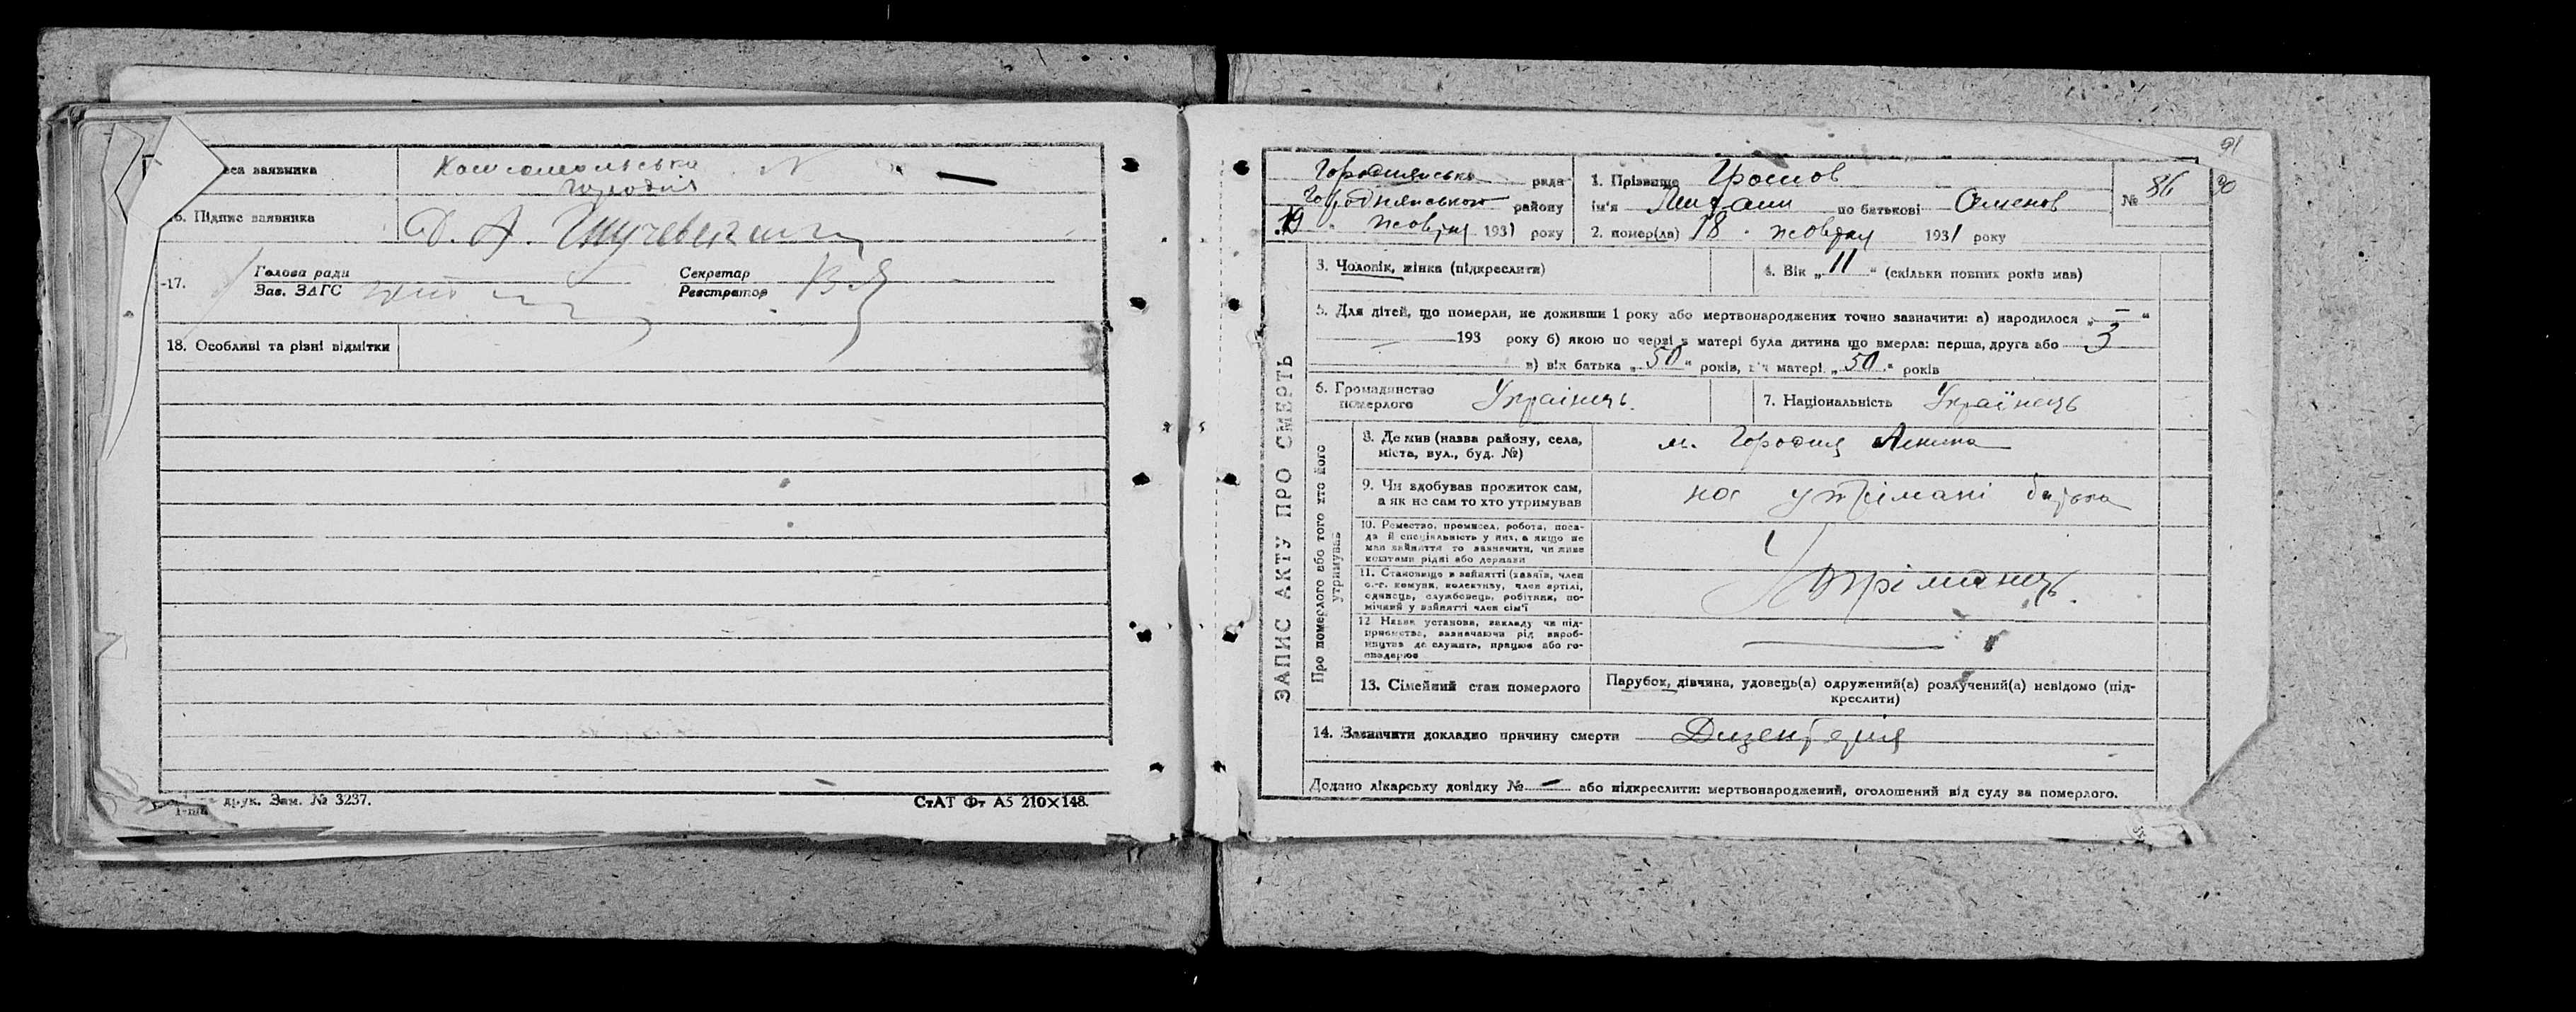 еса заявника Комсомольська
Городня
16. Підпис заявника Ф. А.
17. Голова ради
Зав. ЗАГС
Секретар
Реєстратор
18. Особливі та різні відмітки
друк. Зам. № 3237.
СтАТ Фт А5 210×148.
91
90
Городнянська рада
Городнянського району
19 жовтня 1931 року
1. Прізвище Громов
ім'я Михайл по батькові Семенов
2. помер(ла) 18 жовтня 1931 року
№ 86
ЗАПИС АКТУ ПРО СМЕРТЬ
3. Чоловік, жінка (підкреслити)
4. Вік „11“ (скільки повних років мав)
5. Для дітей, що померли, не доживши 1 року або мертвонароджених точно зазначити: а) народилося „—“
— 193 року б) якою по черзі у матері була дитина що вмерла: перша, друга або 3
в) вік батька „50“ років, вік матері „50“ років
6. Громадянство
померлого Українець
7. Національність Українець
Про померлого або того хто його
утримував
8. Де жив (назва району, села,
міста, вул., буд. №) м. Городня Леніна
9. Чи здобував прожиток сам,
а як не сам то хто утримував на утрімані батька
10. Ремество, промисел, робота, поса-
да й спеціяльність у них, а якщо не
мав зайняття то зазначити, чи живе
коштами рідні або держави
11. Становище в зайнятті (хазяїн, член
с.-г. комуни, колективу, член артілі,
одинець, службовець, робітник, по-
мічний у зайнятті член сім'ї
Утріманець
12 Назва установи, закладу чи під-
приємства, зазначаючи рід вироб-
ництва де служить, працює або го-
сподарює —
13. Сімейний стан померлого Парубок, дівчина, удовець(а) одружений(а) розлучений(а) невідомо (під-
креслити)
14. Зазначити докладно причину смерти Дизентерія
Додано лікарську довідку № — або підкреслити: мертвонароджений, оголошений від суду за померлого.